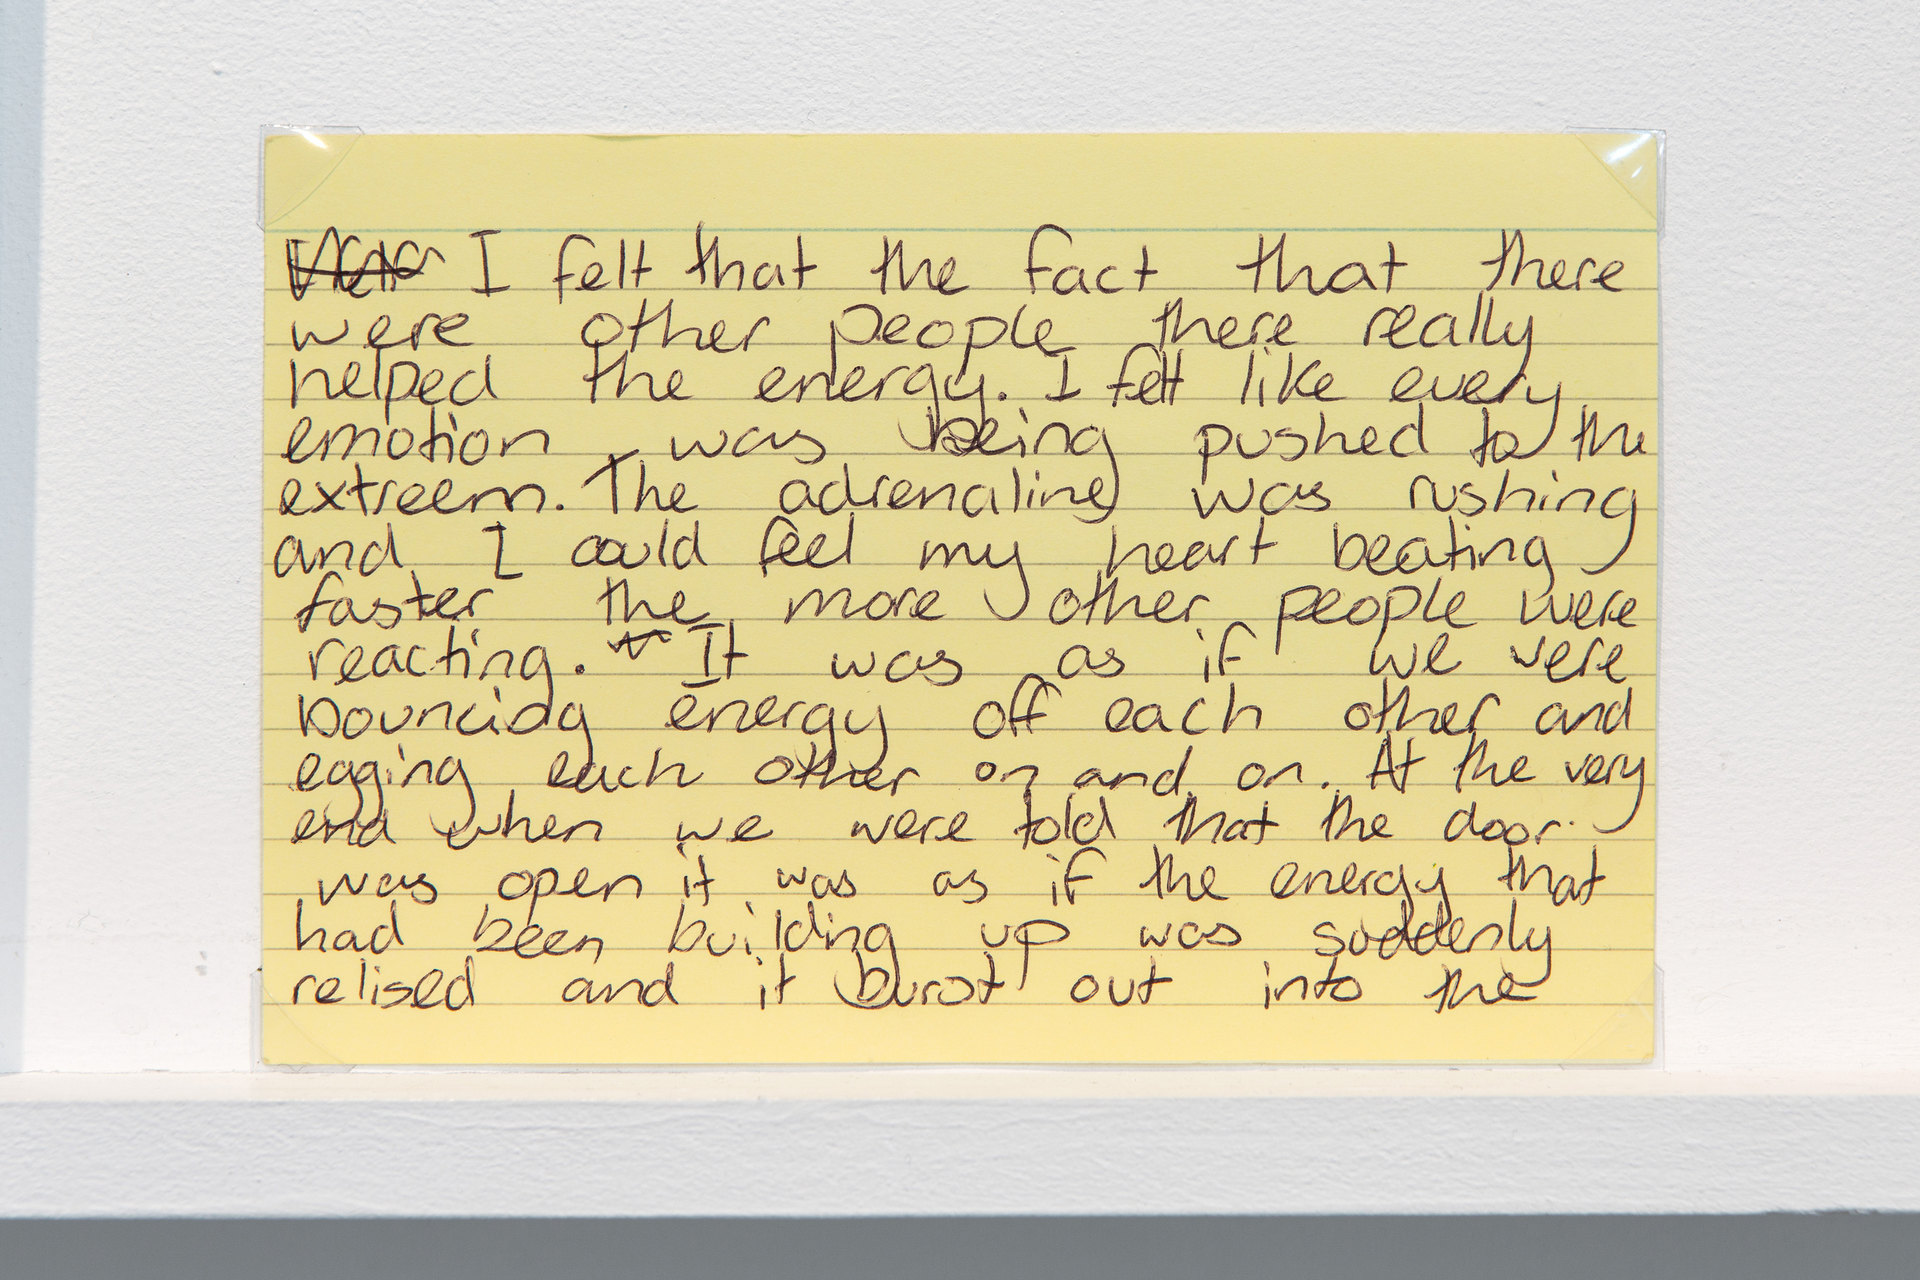 I felt that the fact that there
were other people there really
helped the energy. I felt like every
emotion was being pushed to the
extreem. The adrenaline was rushing
and I could feel my heart beating
faster the more other people were
reacting. It was as if we were
bouncing energy off each other and
egging each other on and on. At the very
end when we were told that the door
was open it was as if the energy that
had been building up was suddenly
relised and it burst out into the